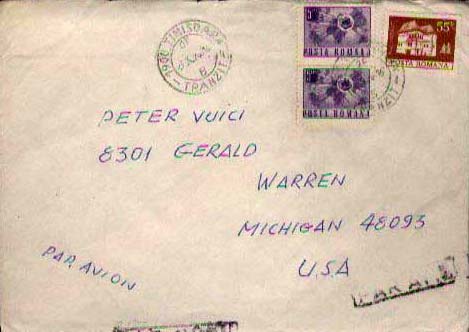 1900 TIMISOARA
TRANZIT
POSTA ROMANA
55
POSTA ROMANA
POSTA ROMANA
PETER VUICI
8301 GERALD
WARREN
MICHIGAN 48093
U.S.A
PAR AVION
PAR AVION